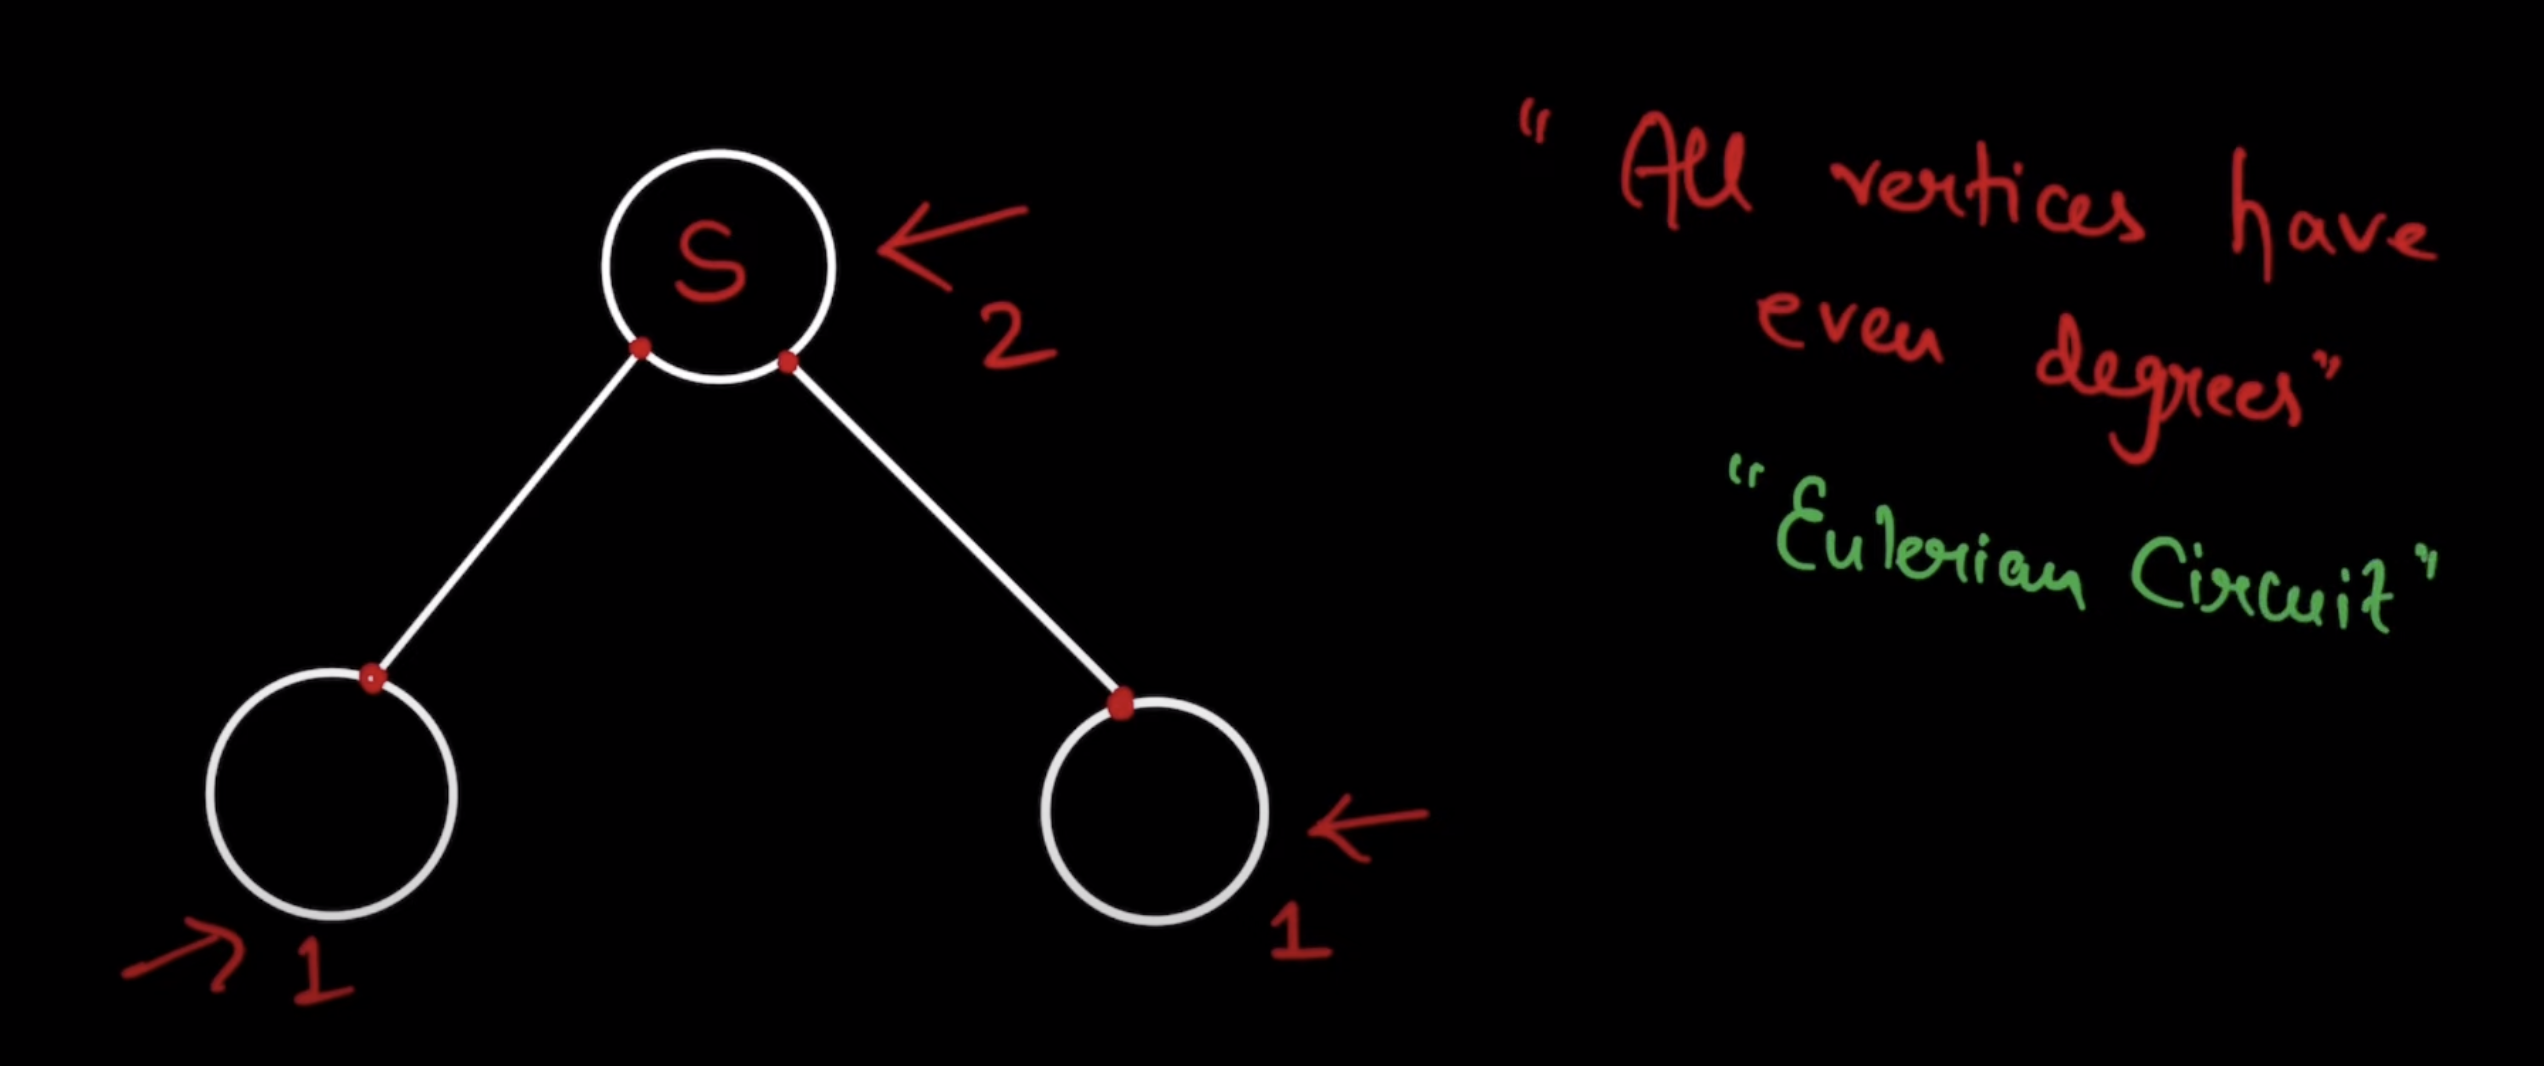 “ All vertices have
even degrees”
“Eulerian Circuit”
S
2
1
1